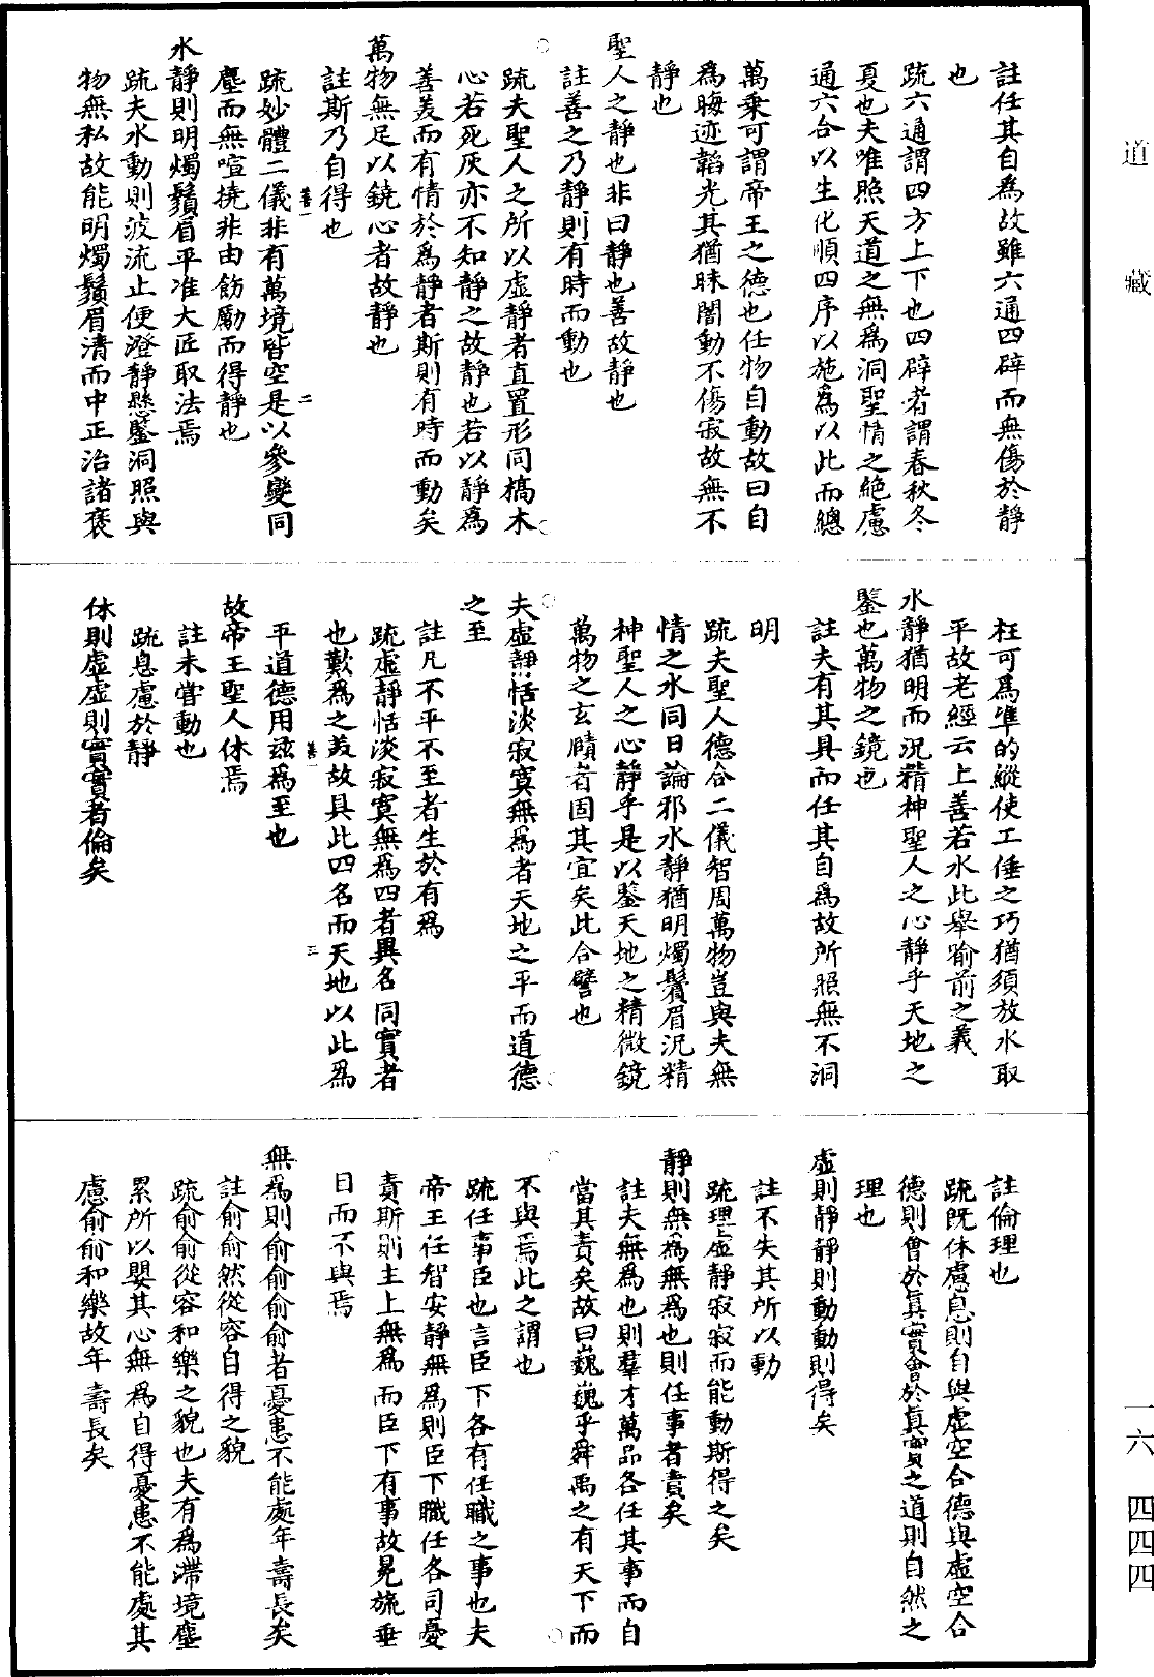 道藏
註任其自爲故雖六通四辟而無傷於靜
也
疏六通謂四方上下也四辟者謂春秋冬
夏也夫唯照天道之無爲洞聖情之絶慮
通六合以生化順四序以施爲以此而總
萬乗可謂帝王之德也任物自動故曰自
爲晦迹韜光其猶昧闇動不傷寂故無不
靜也
聖人之靜也非曰靜也善故靜也
註善之乃靜則有時而動也
疏夫聖人之所以虛靜者直置形同槁木
心若死灰亦不知靜之故靜也若以靜爲
善美而有情於爲靜者斯則有時而動矣
萬物無足以鐃心者故靜也
註斯乃自得也
善一 二
疏妙體二儀非有萬境皆空是以參變同
塵而無喧撓非由飭勵而得靜也
水靜則明燭鬚眉平准大匠取法焉
疏夫水動則波流止便澄靜懸鑒洞照與
物無私故能明燭鬚眉清而中正治諸衺
枉可爲准的縱使工倕之巧猶須放水取
平故老經云上善若水此舉喻前之義
水靜猶明而況精神聖人之心靜乎天地之
鑒也萬物之鏡也
註夫有其具而任其自爲故所照無不洞
明
疏夫聖人德合二儀智周萬物豈與夫無
情之水同日論邪水靜猶明燭鬢眉況精
神聖人之心靜乎是以鑒天地之精微鏡
萬物之玄賾者固其宜矣此合譬也
夫虛靜恬淡寂寞無爲者天地之平而道德
之至
註凡不平不至者生於有爲
疏虛靜恬淡寂寞無爲四者異名同實者
也歎爲之美故具此四名而天地以此爲
善一 三
平道德用兹爲至也
故帝王聖人休焉
註未甞動也
疏息慮於靜
休則虛虛則實實者倫矣
註倫理也
疏既休慮息則自與虛空合德與虛空合
德則會於眞實會於眞實之道則自然之
理也
虛則靜靜則動動則得矣
註不失其所以動
疏理虛靜寂寂而能動斯得之矣
靜則無爲無爲也則任事者責矣
註夫無爲也則羣才萬品各任其事而自
當其責矣故曰巍巍乎舜禹之有天下而
不與焉此之謂也
疏任事臣也言臣下各有任職之事也夫
帝王任智安靜無爲則臣下職任各司憂
責斯則主上無爲而臣下有事故冕旒垂
目而不與焉
無爲則俞俞俞俞者憂患不能處年壽長矣
註俞俞然從容自得之貌
疏俞俞從容和樂之貌也夫有爲滯境塵
累所以嬰其心無爲自得憂患不能處其
慮俞俞和樂故年壽長矣
一六 四四四